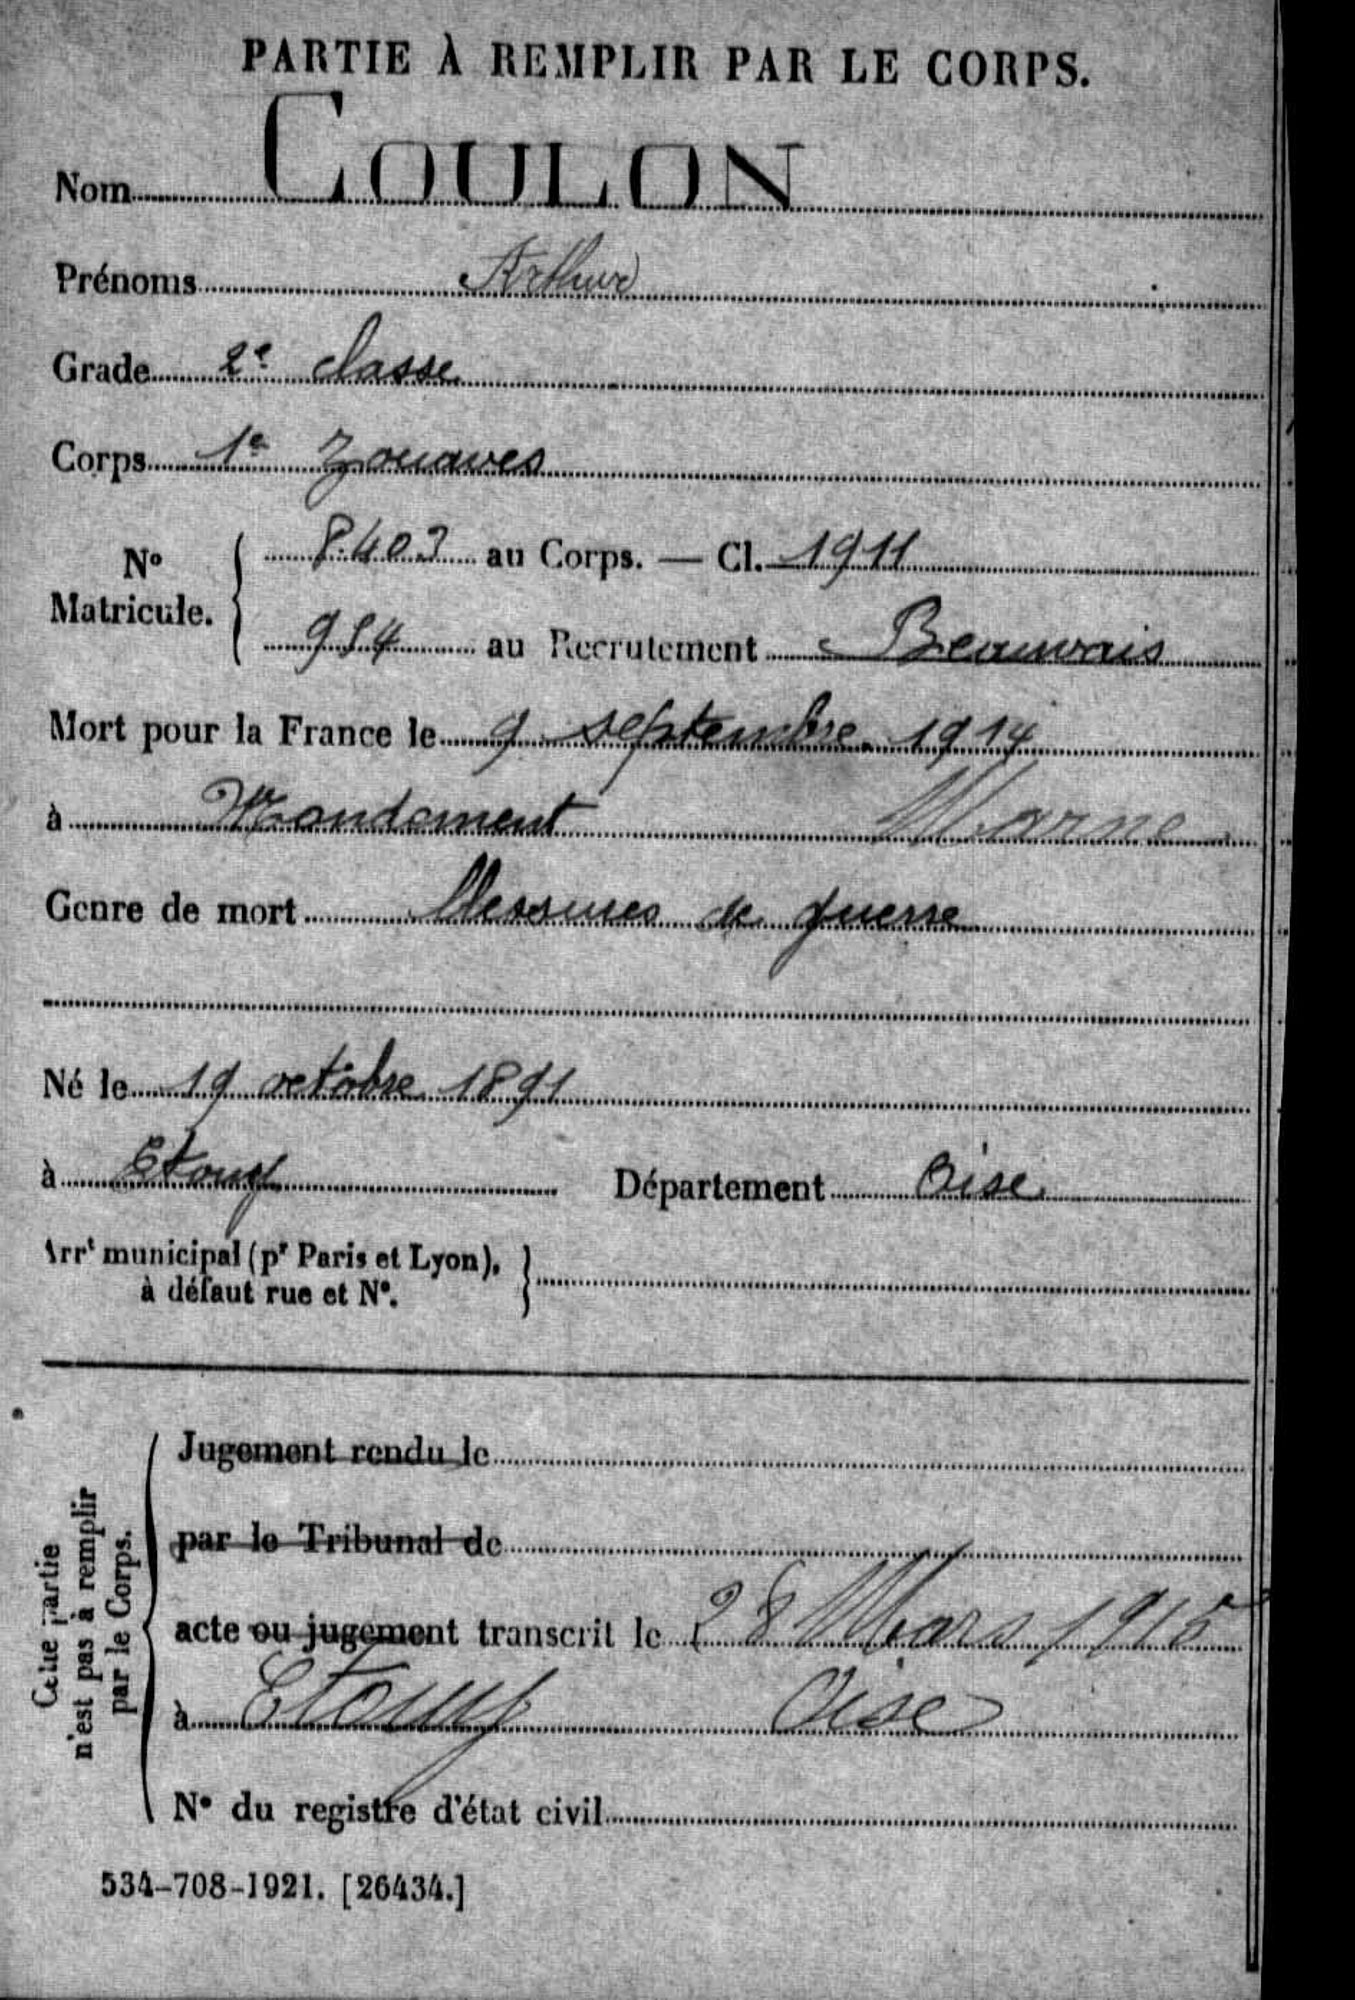 PARTIE À REMPLIR PAR LE CORPS.
Nom COULON
Prénoms Arthur
Grade 2e classe
Corps 1e Zouaves
No Matricule. 8.403 au Corps. — Cl. 1911
954 au Recrutement Beauvais
Mort pour la France le 9 septembre 1914
à Mondement Marne
Genre de mort blessures de guerre
Né le 19 octobre 1891
à Etouy Département Oise
Arrt municipal (pr Paris et Lyon),
à défaut rue et N°.
Cette partie
n'est pas à remplir
par le Corps.
Jugement rendu le
par le Tribunal de
acte ou jugement transcrit le 28 Mars 1915
à Etouy Oise
N° du registre d'état civil
534-708-1921. [26434.]